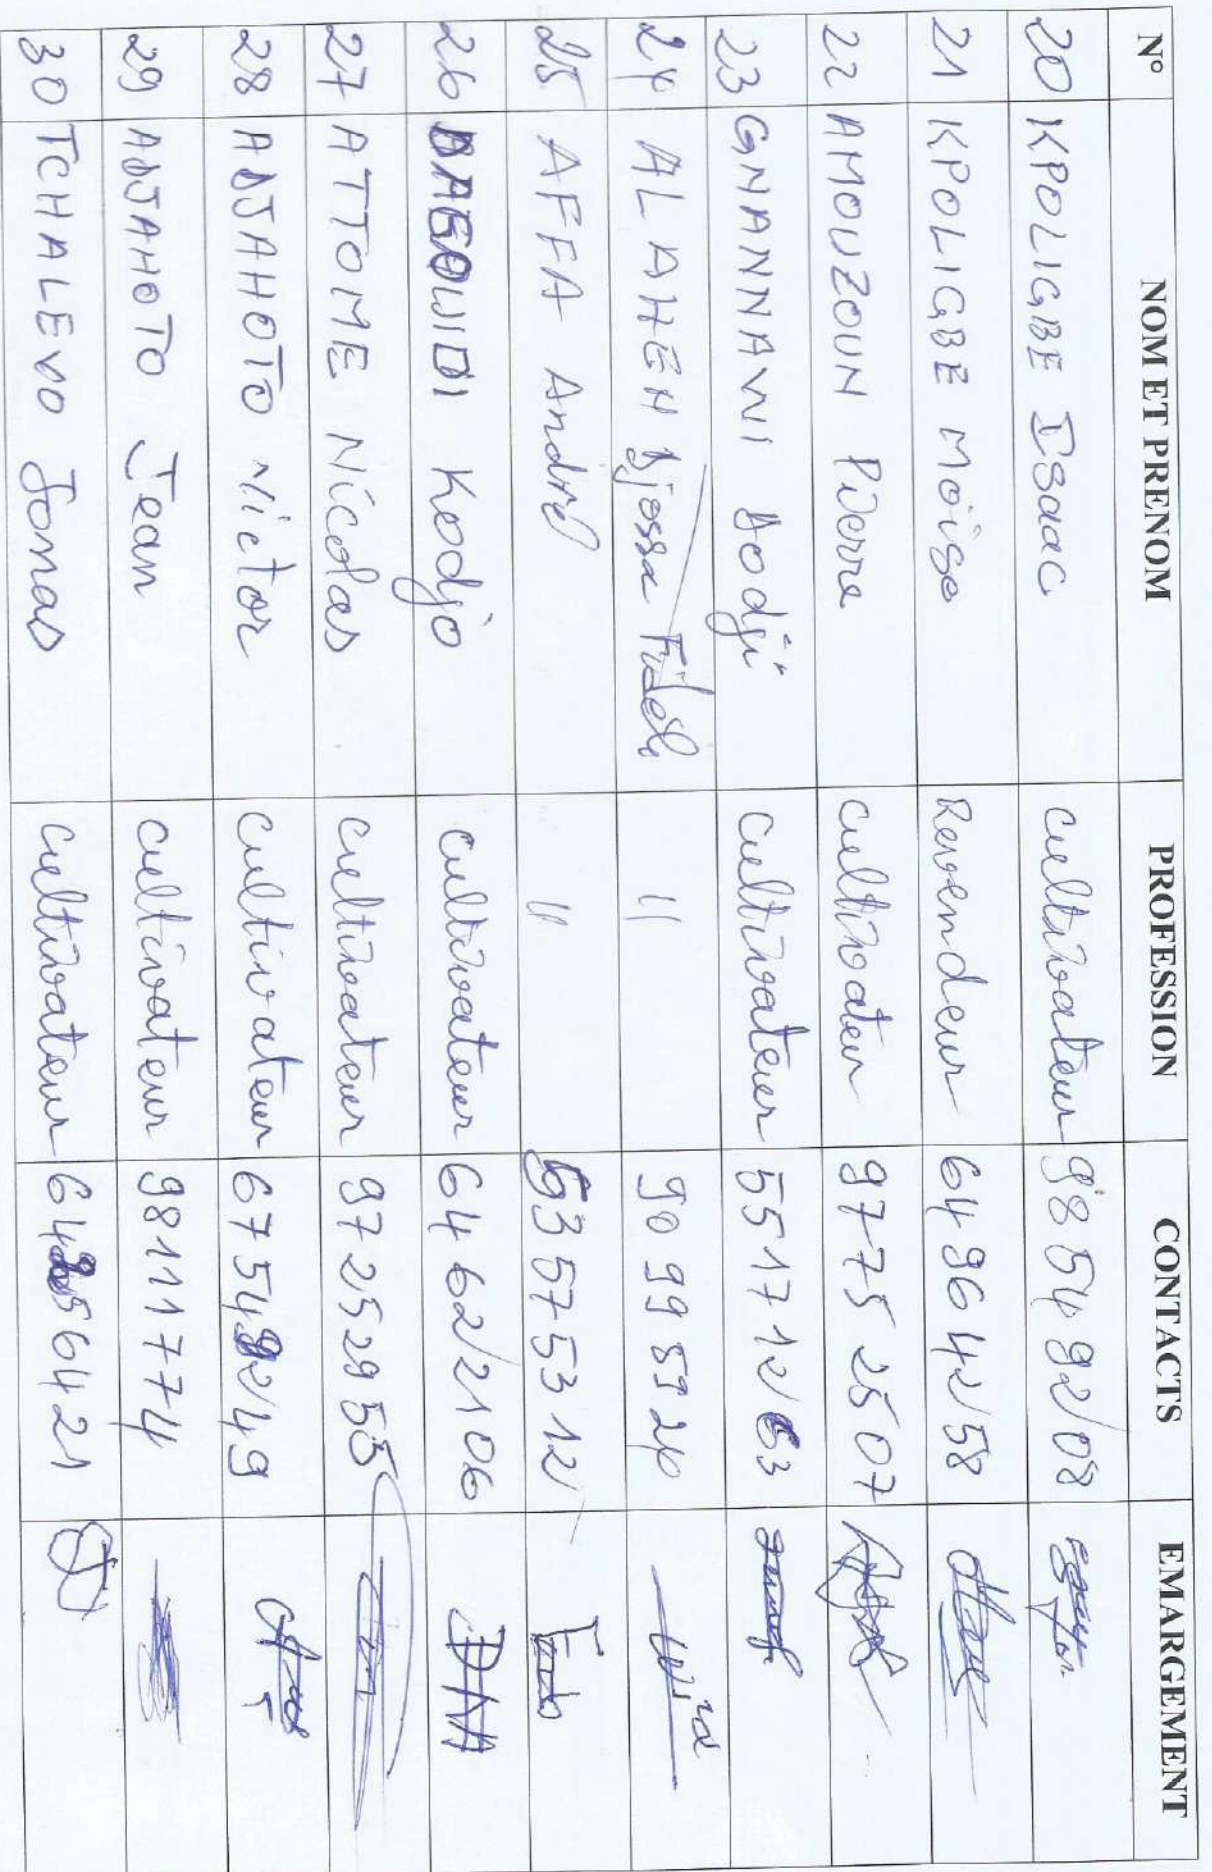 N° NOM ET PRENOM PROFESSION CONTACTS EMARGEMENT
20 KPOLIGBE Isaac cultivateur 98 54 92 08
21 KPOLIGBE Moïse Revendeur 64 96 42 58
22 AMOUZOUN Pierre cultivateur 97 75 25 07
23 GNANNAWI Dodji cultivateur 55 17 12 63
24 ALAHEH Djossa Fidèle " 90 99 59 24
25 AFFA André " 53 57 53 12
26 Kodjo cultivateur 64 62 21 06
27 ATTOME Nicolas cultivateur 97 25 29 55
28 ADJAHOTO Victor cultivateur 67 54 92 49
29 ADJAHOTO Jean cultivateur 98 11 17 74
30 TCHALEVO Jonas cultivateur